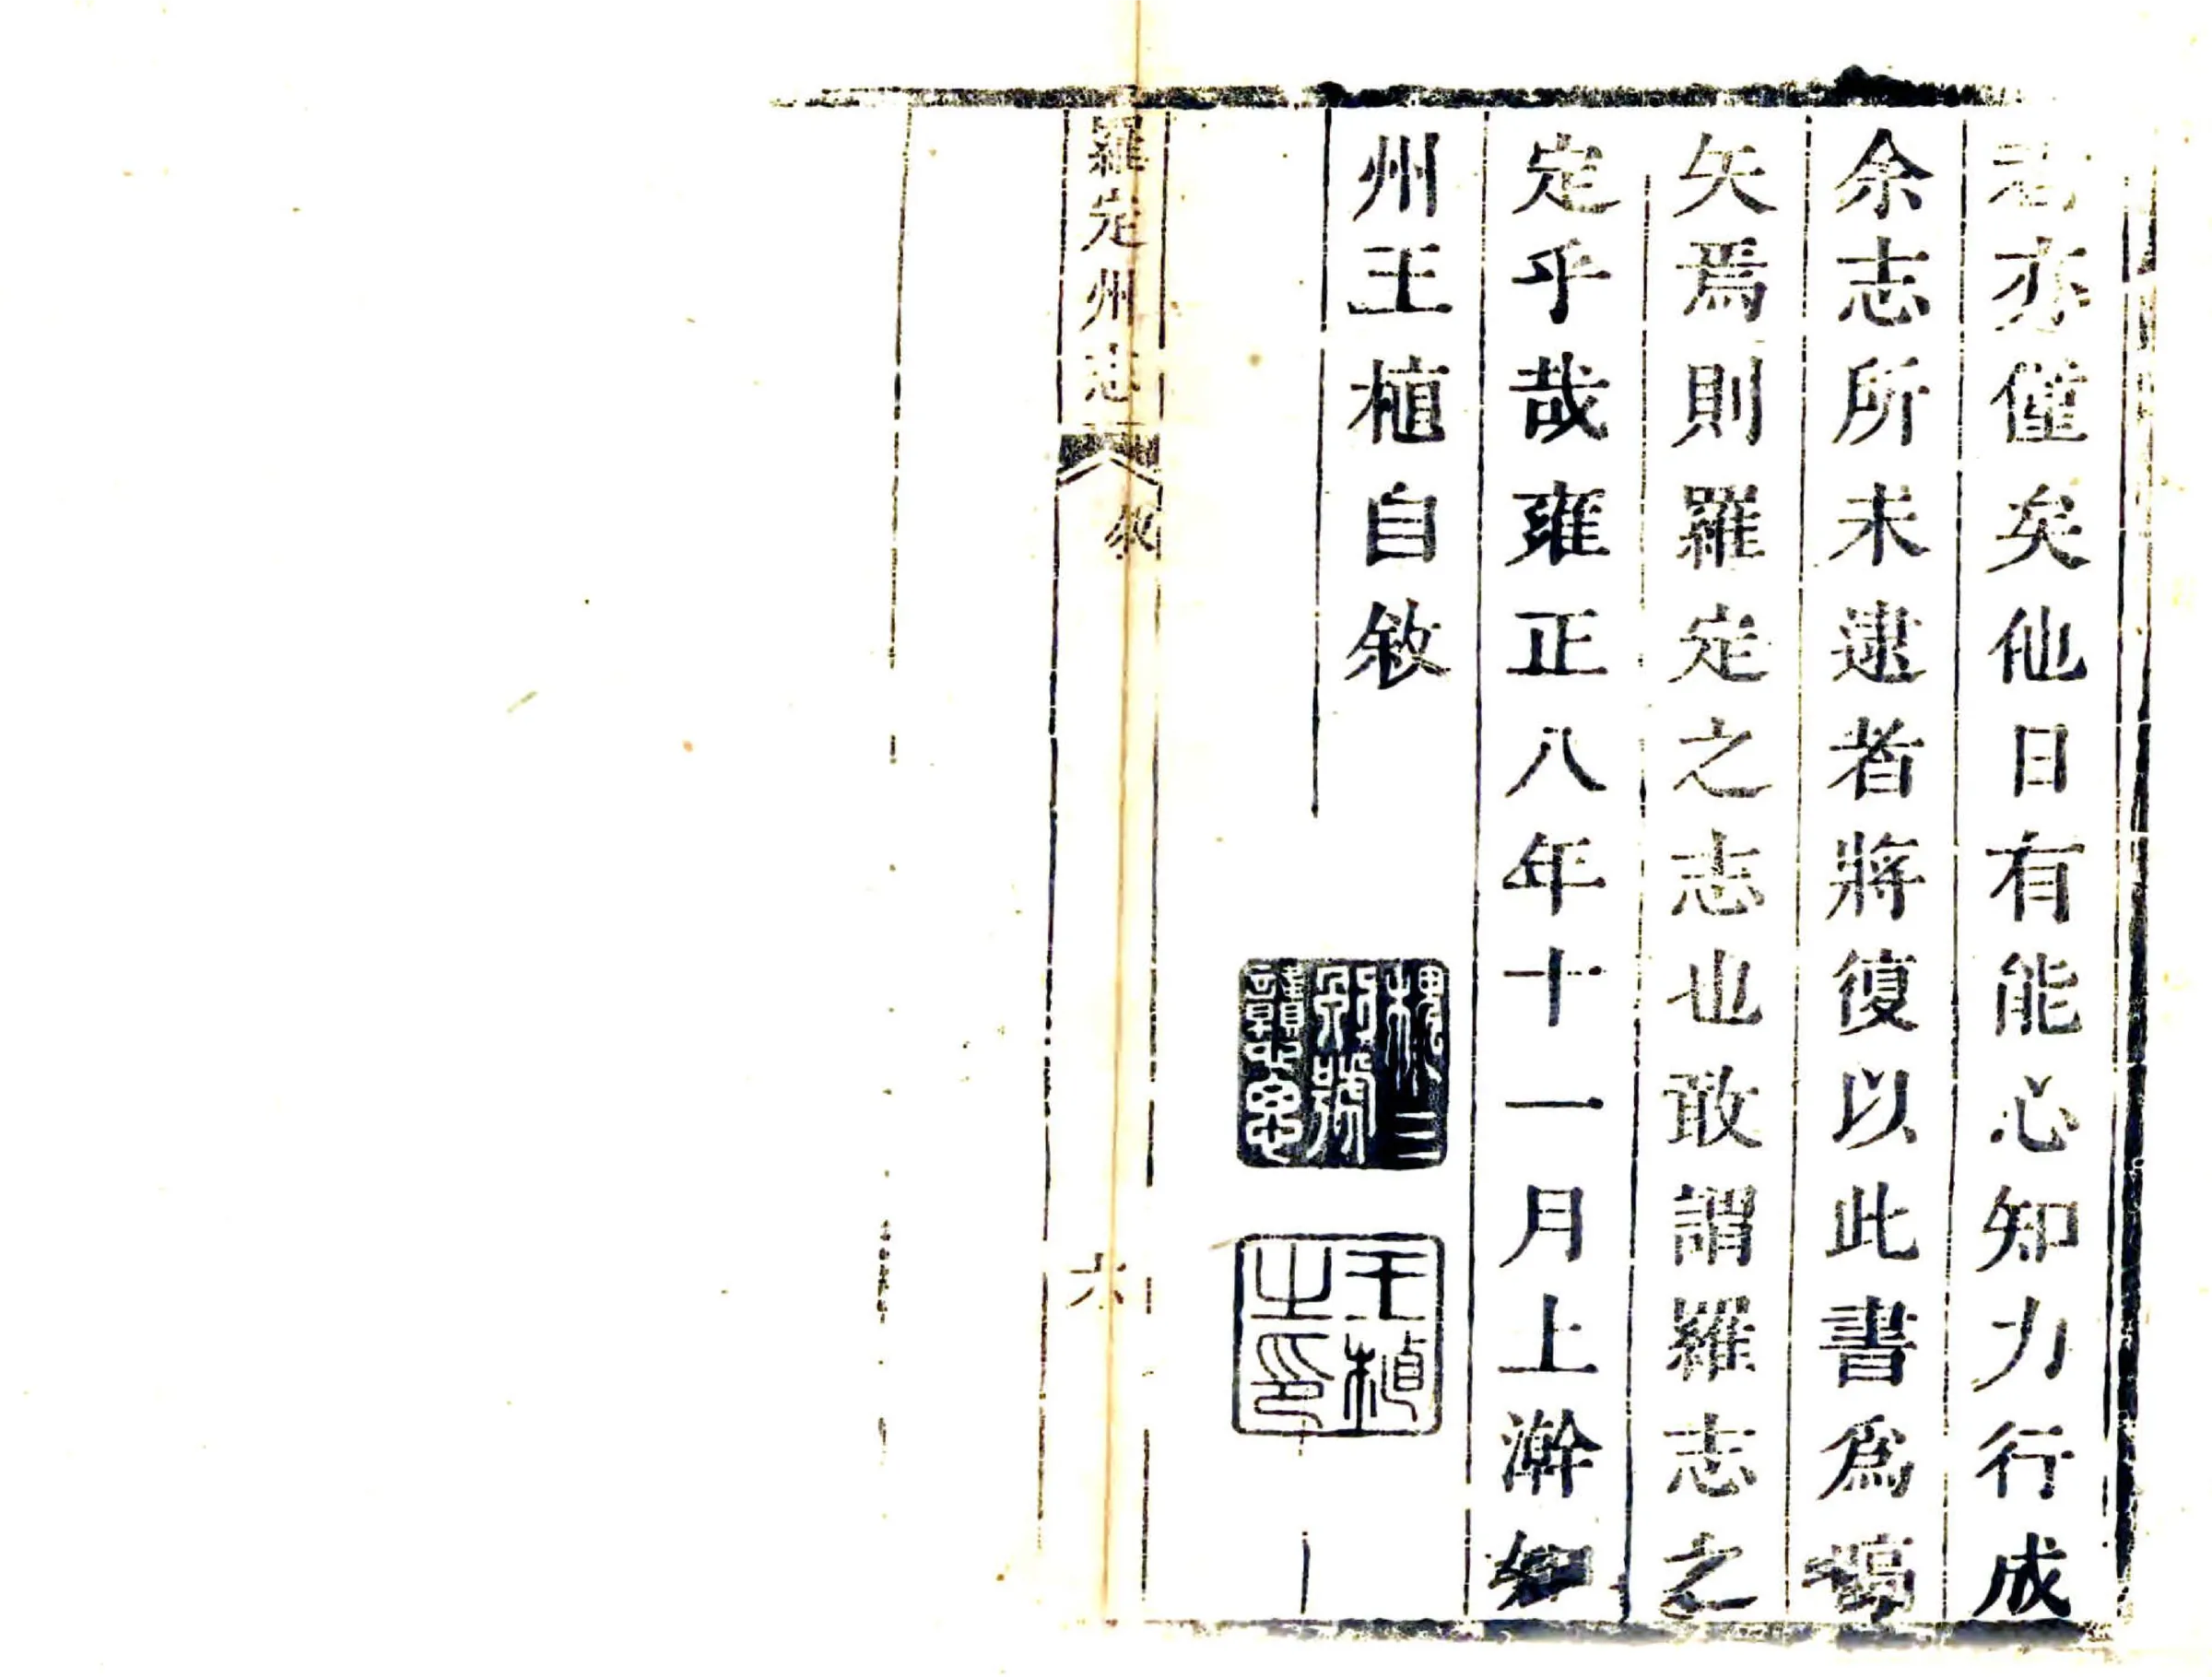 君亦僅矣他日有能心知力行成
余志所未逮者將復以此書爲嚆
矢焉則羅定之志也敢謂羅志之
定乎哉雍正八年十一月上澣知
州王植自敘
槐三
別號
戇思
王植
之印
羅定州志
敘
六